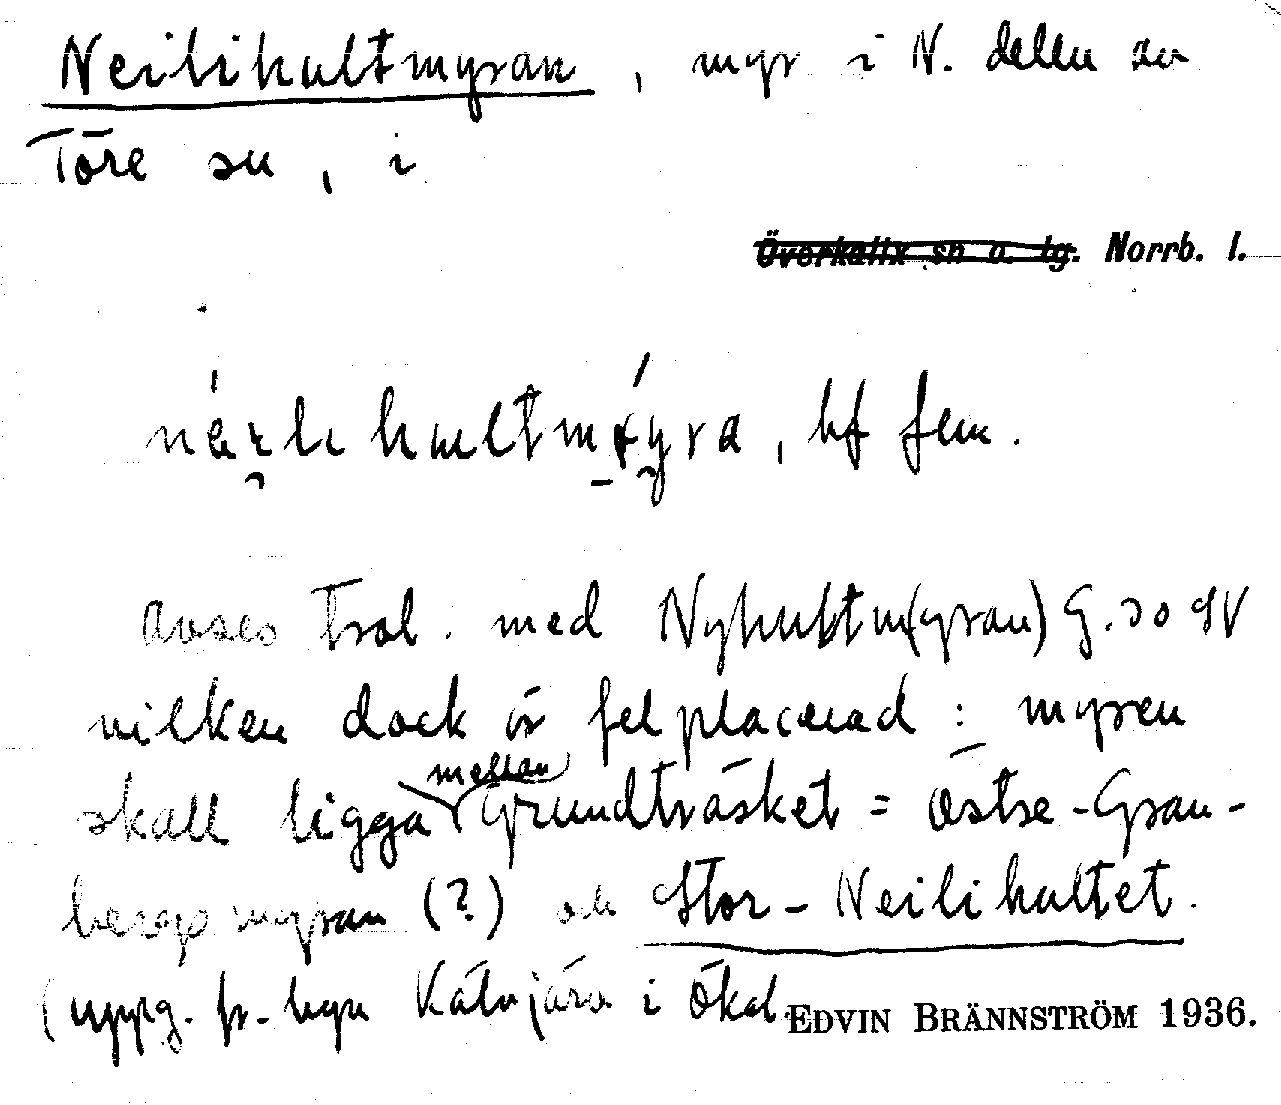 Neilihultmyran, myr i N. delen av
Töre sn, i
Överkalix sn o. tg. Norrb. l.
hultmyra, bf fem.
avses trol. med Nyhultm(yran) G.30 SV
vilken dock är felplacerad: myren
skall ligga mellan Grundträsket = Östre-Gran-
bergsmyran (?) och Stor-Neilihultet.
(uppg. fr. byn Kälvjärv i Ökal.
EDVIN BRÄNNSTRÖM 1936.